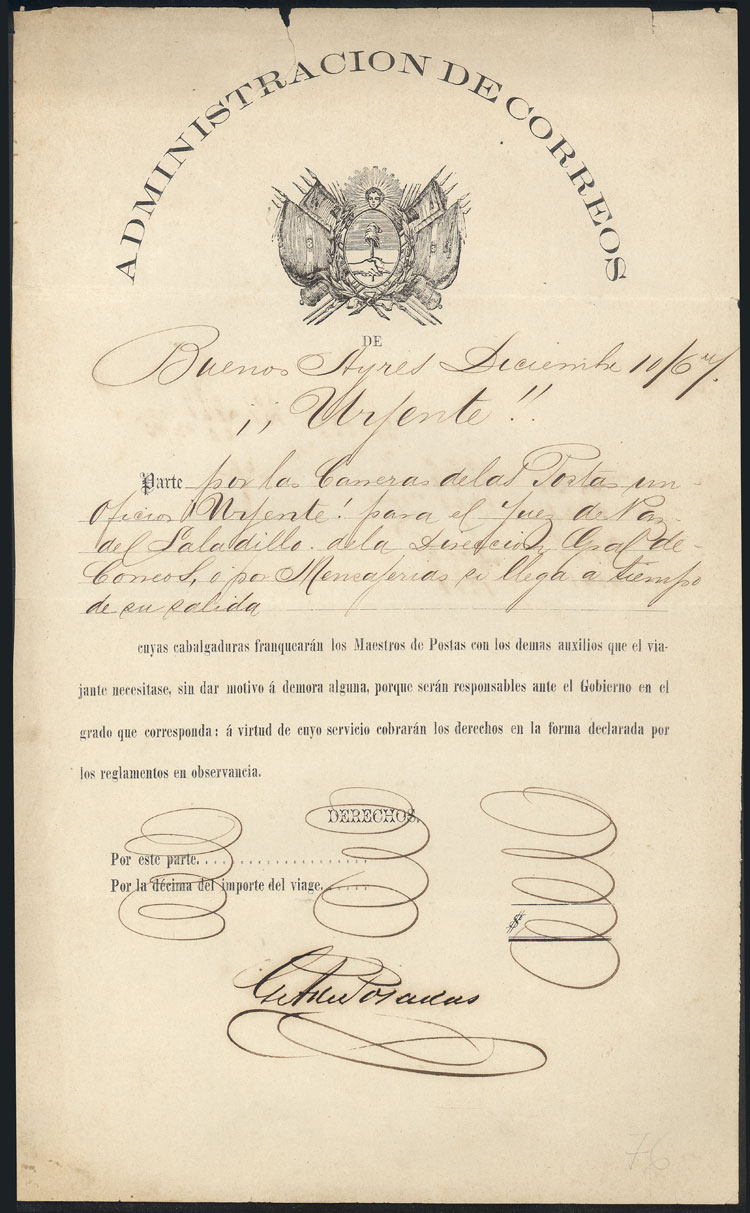 ADMINISTRACION DE CORREOS
DE
Buenos Ayres Diciembre 10/67.
¡¡ Urjente !!
Parte por las Carreras de las Postas un
oficio ¡Urjente! para el Juez de Paz
del Saladillo de la Dirección Gral de
Correos, o por Mensajerias si llega a tiempo
de su salida
cuyas cabalgaduras franquearán los Maestros de Postas con los demas auxilios que el via-
jante necesitase, sin dar motivo á demora alguna, porque serán responsables ante el Gobierno en el
grado que corresponda: á virtud de cuyo servicio cobrarán los derechos en la forma declarada por
los reglamentos en observancia.
DERECHOS.
Por este parte.....................
Por la décima del importe del viage.......
$
Posadas
76